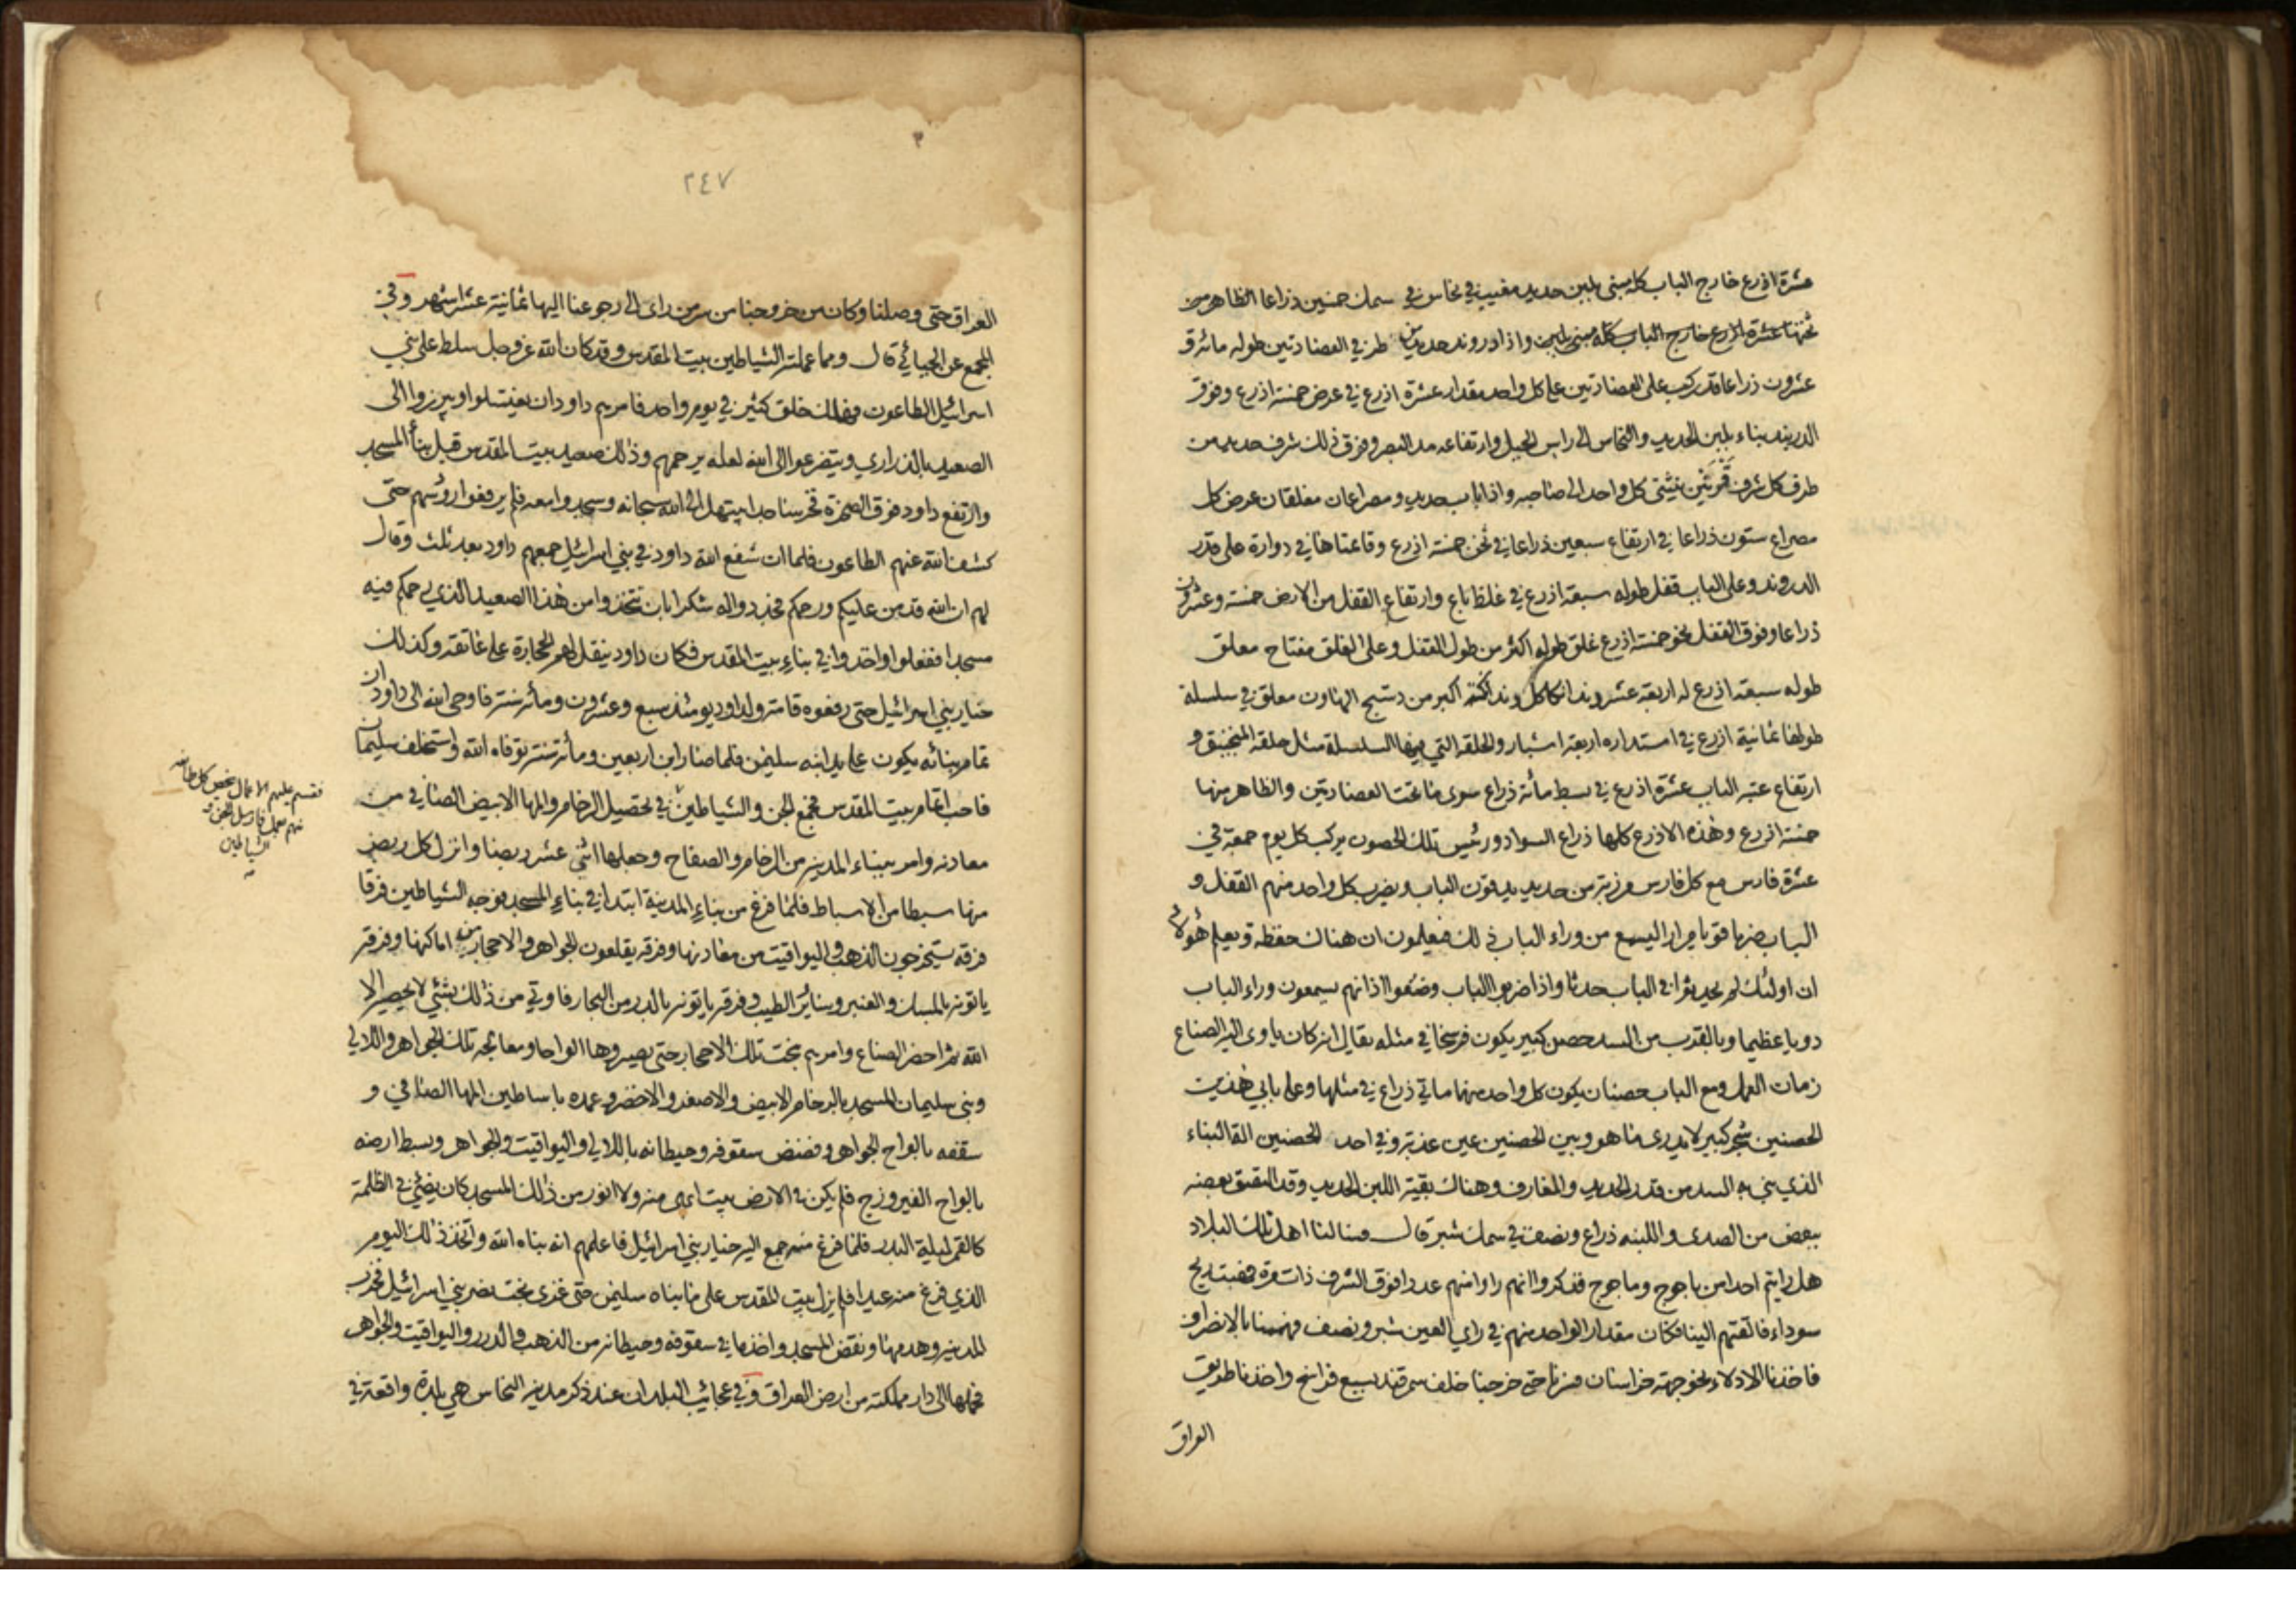 عشرة اذرع خارج الباب كله مبنى بلبن حديد مغيب في نحاس في سمك خمسين ذراعا الظاهر من
تحتها عشرة اذرع خارج الباب كله مبنى بلبن واذا دروند حديد طرفي العضادتين طوله مائة و
عشرون ذراعا قد ركب على العضادتين على كل واحد مقدار عشرة اذرع في عرض خمسة اذرع وفوق
الدربند بناء بلبن الحديد والنحاس الى راس الجبل وارتفاعه مد البصر وفوق ذلك شرف حديد من
طرف كل شرف قرنتين ينثني كل واحد الى صاحبه واذا باب حديد ومصراعان مغلقان عرض كل
مصراع ستون ذراعا في ارتفاع سبعين ذراعا في ثخن خمسة اذرع وقائمتاها في دوارة على قدر
الدروند وعلى الباب قفل طوله سبعة اذرع في غلظ باع وارتفاع القفل من الارض خمسة وعشرون
ذراعا وفوق القفل نحو خمسة اذرع غلق طوله اكثر من طول القفل وعلى الغلق مفتاح معلق
طوله سبعة اذرع له اربعة عشر دندانكا كل دندانكة اكبر من دستج الهاون معلق في سلسلة
طولها ثمانية اذرع في استداره اربعة اشبار والحلقه التي فيها السلسلة مثل حلقه المنجنيق و
ارتفاع عتبه الباب عشرة اذرع في بسط مائة ذراع سوى ما تحت العضادتين والظاهر منها
خمسة اذرع وهذه الاذرع كلها ذراع السواد ورئيس تلك الحصون يركب كل يوم جمعة في
عشرة فارس مع كل فارس مرزبة من حديد يدقون الباب ويضرب كل واحد منهم القفل و
الباب ضربا قويا مرارا ليسمع من وراء الباب ذلك فيعلمون ان هناك حفظة ويعلم هؤلاء
ان اولئك لم يحدثوا في الباب حدثا واذا ضربوا الباب وضعوا اذانهم يسمعون وراء الباب
دويا عظيما وبالقرب من السد حصن كبير يكون فرسخا في مثله يقال انه كان ياوى اليه الصناع
زمان العمل ومع الباب حصنان يكون كل واحد منهما مائتي ذراع في مثلها وعلى بابي هذين
الحصنين شجر كبير لا يدرى ما هو وبين الحصنين عين عذبة وفي احد الحصنين القالبناء
الذي بنى به السد من قدر الحديد والمغارف وهناك بقية اللبن الحديد وقد التصق بعضه
ببعض من الصدى واللبنه ذراع ونصف في سمك شبر قال فسالنا اهل تلك البلاد
هل رايتم احدا من ياجوج وماجوج فذكروا انهم راوا منهم عددا فوق الشرف ذات مرة فهبت ريح
سوداء فالقتهم الينا فكان مقدار الواحد منهم في راي العين شبر ونصف فهممنا بالانصراف
فاخذنا الادلاء نحو جهة خراسان فسرنا حتى خرجنا خلف سمرقند بسبع فراسخ واخذنا طريق
العراق
٢٤٧
العراق حتى وصلنا وكان من خروجنا من سر من راى الى رجوعنا اليها ثمانية عشر اشهر وفي
المجمع عن الجبائي قال ومما عملته الشياطين بيت المقدس وقد كان الله عز وجل سلط على بني
اسرائيل الطاعون فهلك خلق كثير في يوم واحد فامرهم داود ان يغتسلوا ويبرزوا الى
الصعيد بالذراري ويتضرعوا الى الله لعله يرحمهم وذلك صعيد بيت المقدس قبل بناء المسجد
وارتفع داود فوق الصخرة فخر ساجدا يبتهل الى الله سبحانه وسجدوا معه فلم يرفعوا رؤسهم حتى
كشف الله عنهم الطاعون فلما ان شفع الله داود في بني اسرائيل جمعهم داود بعد ثلث وقال
لهم ان الله قد من عليكم ورحمكم فجددوا له شكرا بان تتخذوا من هذا الصعيد الذي رحمكم فيه
مسجدا ففعلوا واخذوا في بناء بيت المقدس فكان داود ينقل لهم الحجارة على عاتقه وكذلك
خيار بني اسرائيل حتى رفعوه قامة ولداود يومئذ سبع وعشرون ومأة سنة فاوحى الله الى داود ان
تمام بنائه يكون على يد ابنه سليمن فلما صار ابن اربعين ومأة سنة توفاه الله واستخلف سليمان
فاحب اتمام بيت المقدس فجمع الجن والشياطين في تحصيل الرخام والمها الابيض الصافي من
فقسم عليهم الاعمال يخص كل طائفة
منهم بعمل فارسل الجن و
الشياطين
معادنه وامر ببناء المدينة من الرخام والصفاح وجعلها اثنى عشر ربضا وانزل كل ربض
منها سبطا من الاسباط فلما فرغ من بناء المدينة ابتدا في بناء المسجد فوجه الشياطين فرقا
فرقه يستخرجون الذهب واليواقيت من معادنها وفرقه يقلعون الجواهر والاحجار من اماكنها وفرقة
ياتونه بالمسك والعنبر وسائر الطيب وفرقة ياتونه بالدر من البحار فاوتي من ذلك بشئي لا يحصيه الا
الله ثم احضر الصناع وامرهم بنحت تلك الاحجار حتى يصيروها الواحا ومعالجة تلك الجواهر واللآلي
وبنى سليمان المسجد بالرخام الابيض والاصفر والاخضر وعمده باساطين المها الصافي و
سقفه بالواح الجواهر وفضض سقوفه وحيطانه باللالي واليواقيت والجواهر وبسط ارضه
بالواح الفيروزج فلم يكن في الارض بيت ابهى منه ولا انور من ذلك المسجد كان يضئي في الظلمة
كالقمر ليلة البدر فلما فرغ منه جمع اليه خيار بني اسرائيل فاعلمهم انه بناه الله واتخذ ذلك اليوم
الذي فرغ منه عيدا فلم يزل بيت المقدس على ما بناه سليمن حتى غزى بخت نصر بني اسرائيل فخرب
المدينة وهدمها ونقض المسجد واخذ ما في سقوفه وحيطانه من الذهب والدرر واليواقيت والجواهر
فحملها الى دار مملكته من ارض العراق وفي عجائب البلدان عند ذكر مدينة النحاس هي بلدة واقعة في